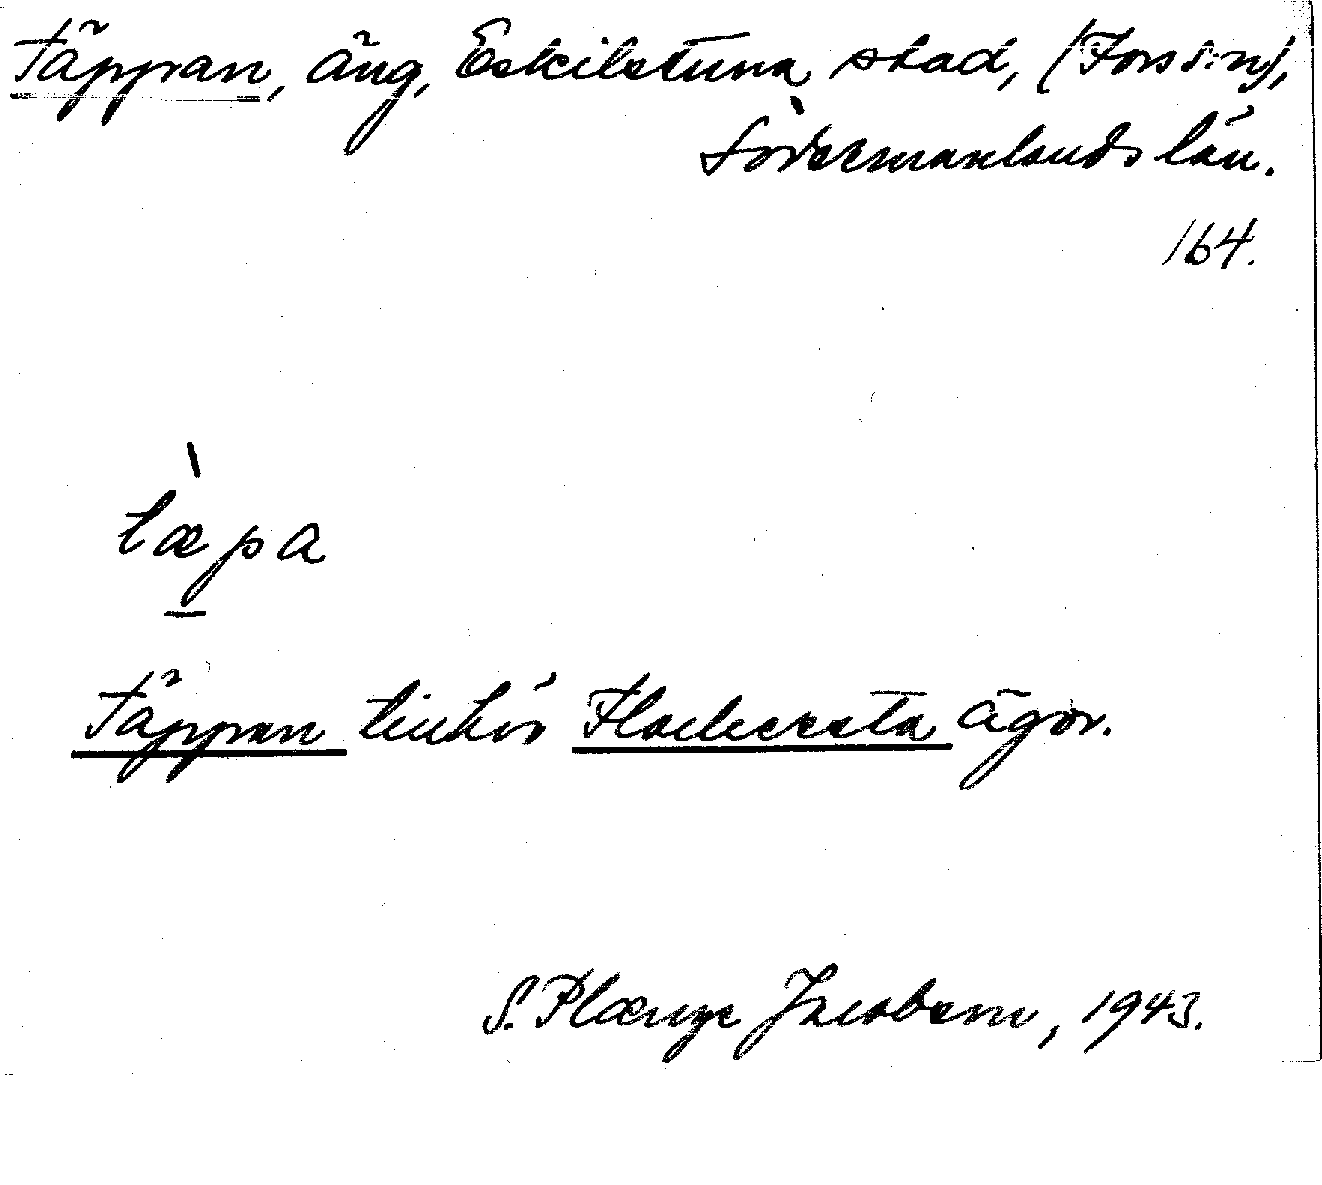 Täppan, äng, Eskilstuna stad, (Fors s:n),
Södermanlands län.
164.
tæ̀pa
Täppan tillhör Flacksta ägor.
S. Plænge Jacobson, 1943.